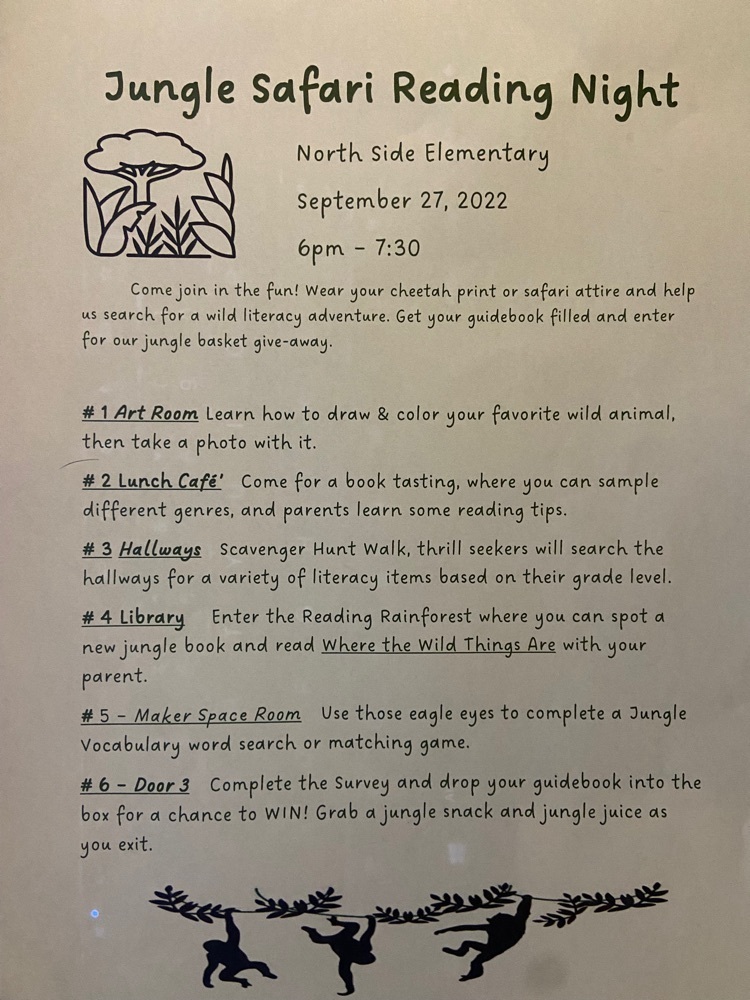 Jungle Safari Reading Night
North Side Elementary
September 27, 2022
6pm - 7:30
Come join in the fun! Wear your cheetah print or safari attire and help
us search for a wild literacy adventure. Get your guidebook filled and enter
for our jungle basket give-away.
# 1 Art Room Learn how to draw & color your favorite wild animal,
then take a photo with it.
# 2 Lunch Café' Come for a book tasting, where you can sample
different genres, and parents learn some reading tips.
# 3 Hallways Scavenger Hunt Walk, thrill seekers will search the
hallways for a variety of literacy items based on their grade level.
# 4 Library Enter the Reading Rainforest where you can spot a
new jungle book and read Where the Wild Things Are with your
parent.
# 5 - Maker Space Room Use those eagle eyes to complete a Jungle
Vocabulary word search or matching game.
# 6 - Door 3 Complete the Survey and drop your guidebook into the
box for a chance to WIN! Grab a jungle snack and jungle juice as
you exit.